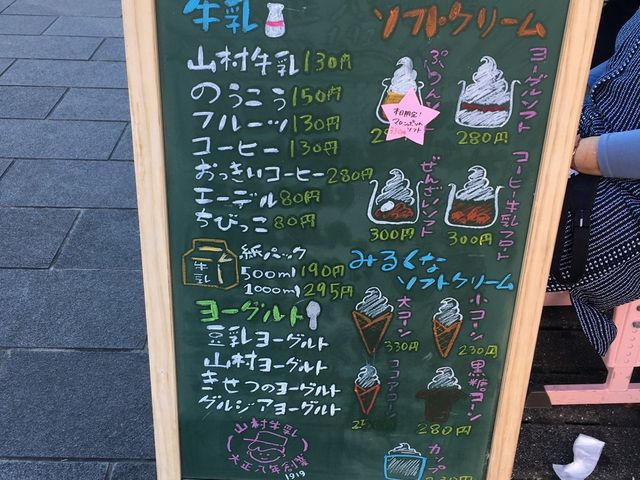 牛乳
山村牛乳 130円
のうこう 150円
フルーツ 130円
コーヒー 130円
おっきいコーヒー 280円
エーデル 80円
ちびっこ 80円
牛乳
紙パック
500ml 190円
1000ml 295円
ヨーグルト
豆乳ヨーグルト
山村ヨーグルト
きせつのヨーグルト
グルジアヨーグルト
山村牛乳
大正八年創業
1919
ソフトクリーム
ソフト
ヨーグルソフト
280円
ぜんざいソフト
300円
コーヒー牛乳フロート
300円
みるくな
ソフトクリーム
大コーン
330円
小コーン
230円
ココアコーン
黒糖コーン
280円
カップ